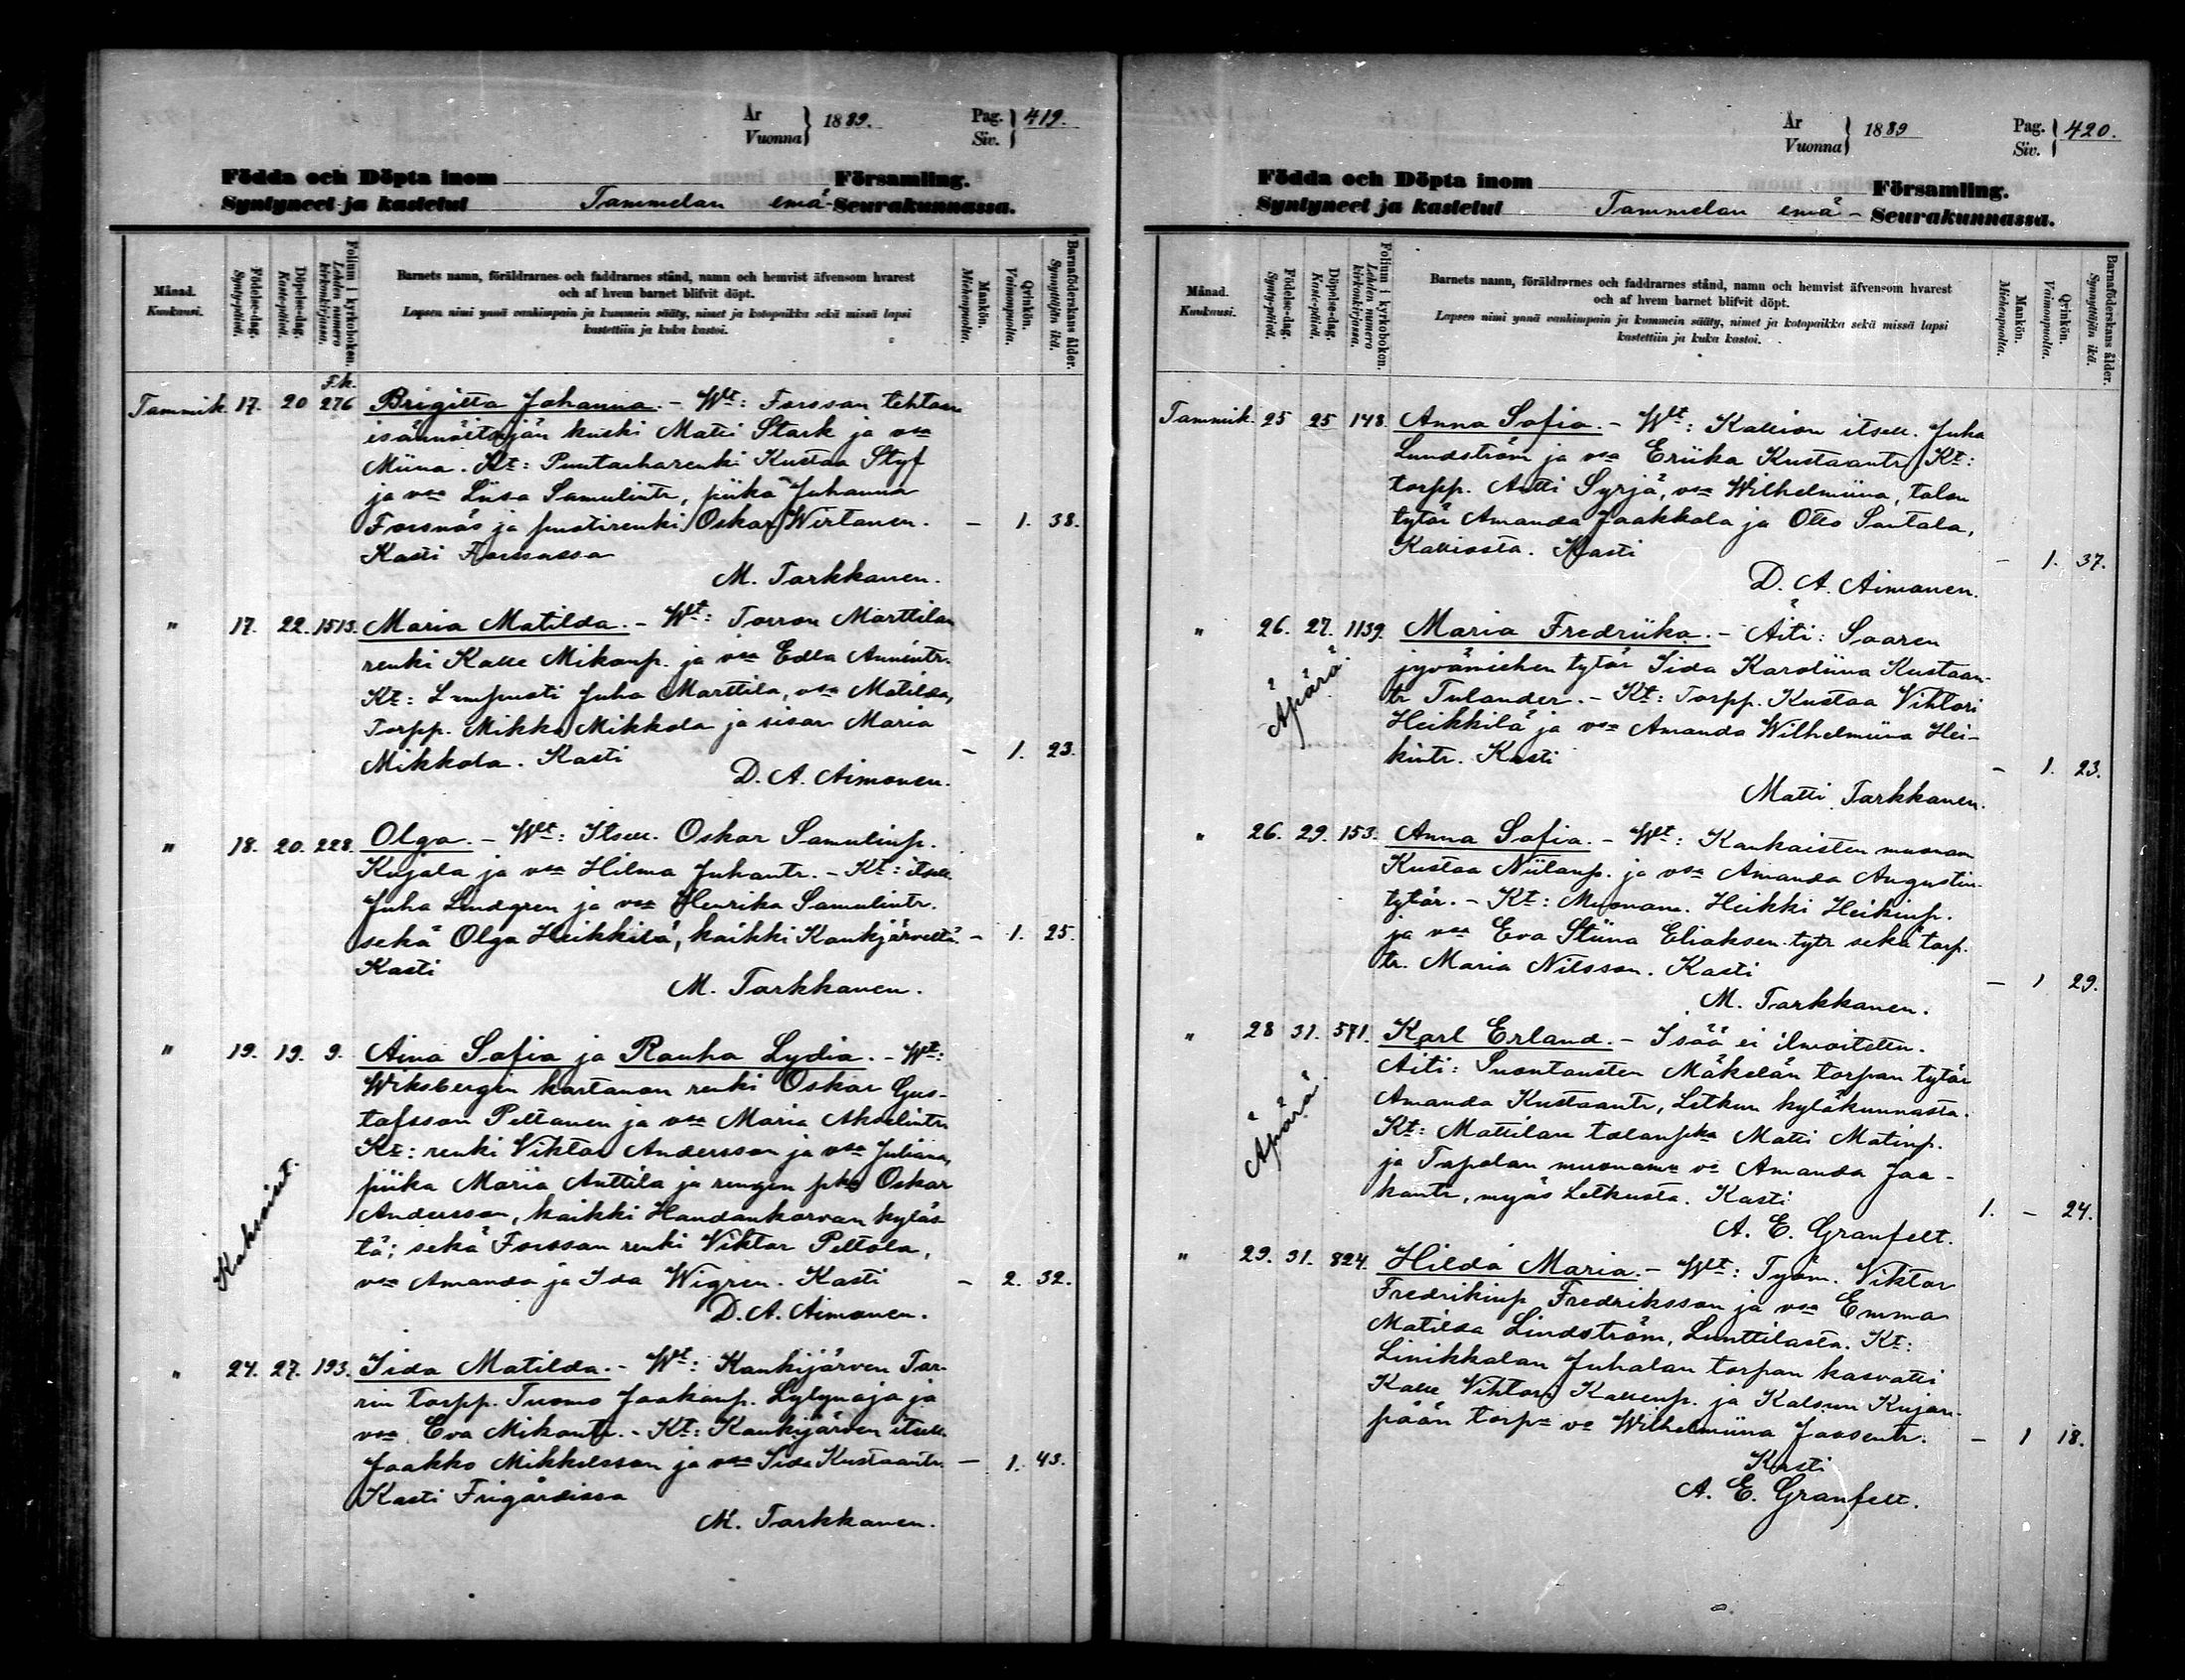 År
Vuonna } 1889.
Pag.
Siv. } 419.
Födda och Döpta inom Församling.
Syntyneet ja kastetut Tammelan emä- Seurakunnassa.
Månad.
Kuukausi.
Födelse-dag.
Synty-päivä.
Döpelse-dag.
Kaste-päivä.
Folium i kyrkoboken.
Lehden numero
kirkonkirjassa.
Barnets namn, föräldrarnes och faddrarnes stånd, namn och hemvist äfvensom hvarest
och af hvem barnet blifvit döpt.
Lapsen nimi ynnä vanhimpain ja kummein sääty, nimet ja kotopaikka sekä missä lapsi
kastettiin ja kuka kastoi.
Mankön.
Miehenpuolta.
Qvinkön.
Vaimonpuolta.
Barnaföderskans ålder.
Synnyttäjän ikä.
F.k.
Tammik. 17. 20 276 Brigitta Johanna. - Wt: Forssan tehtaan
isännöitsijän kuski Matti Stark ja vsa
Miina. Kt: Puutarharenki Kustaa Styf
ja vsa Liisa Samulintr, piika Juhanna
Forsnäs ja puotirenki Oskar Wirtanen. - 1. 38.
Kasti Forssassa
M. Tarkkanen.
" 17. 22. 1513. Maria Matilda. - Wt: Torron Marttilan
renki Kalle Mikonp. ja vsa Edla Annintr.
Kt: Lampuoti Juha Marttila, vsa Matilda,
Torpp. Mikko Mikkola ja sisar Maria
Mikkola. Kasti - 1. 23.
D. A. Aimonen.
" 18. 20. 228. Olga. - Wt: Itsell. Oskar Samulinp.
Kujala ja vsa Hilma Juhantr. - Kt: itsell.
Juha Lindgren ja vsa Henrika Samulintr.
sekä Olga Heikkilä, kaikki Kaukjärveltä. - 1. 25.
Kasti
M. Tarkkanen.
" 19. 19. 9. Aina Sofia ja Rauha Lydia. - Wt:
Wiksbergin kartanon renki Oskar Gus-
tafsson Peltanen ja vsa Maria Akselintr.
Kt: renki Viktor Andersson ja vsa Juliana,
piika Maria Anttila ja rengin pka Oskar
Andersson, kaikki Haudankorvan kyläs-
tä; sekä Forssan renki Viktor Peltola,
vsa Amanda ja Ida Wigren. Kasti - 2. 32.
Kaksoiset.
D. A. Aimonen.
" 24. 27. 193. Iida Matilda. - Wt: Kaukijärven Tor-
rin torpp. Tuomo Jaakonp. Lylynoja ja
vsa Eva Mikontr. - Kt: Kaukijärven itsell.
Jaakko Mikkelsson ja vsa Iida Kustaantr. - 1. 43.
Kasti Frigårdissa
M. Tarkkanen.
År
Vuonna } 1889
Pag.
Siv. } 420.
Födda och Döpta inom Församling.
Syntyneet ja kastetut Tammelan emä- Seurakunnassa.
Månad.
Kuukausi.
Födelse-dag.
Synty-päivä.
Döpelse-dag.
Kaste-päivä.
Folium i kyrkoboken.
Lehden numero
kirkonkirjassa.
Barnets namn, föräldrarnes och faddrarnes stånd, namn och hemvist äfvensom hvarest
och af hvem barnet blifvit döpt.
Lapsen nimi ynnä vanhimpain ja kummein sääty, nimet ja kotopaikka sekä missä lapsi
kastettiin ja kuka kastoi.
Mankön.
Miehenpuolta.
Qvinkön.
Vaimonpuolta.
Barnaföderskans ålder.
Synnyttäjän ikä.
Tammik. 25 25 148. Anna Sofia. - Wt: Kallion itsell. Juha
Lundström ja vsa Eriika Kustaantr. Kt:
torpp. Antti Syrjä, vsa Wilhelmiina, talon
tytär Amanda Jaakkola ja Otto Santala,
Kalliosta. Kasti - 1. 37.
D. A. Aimonen.
" 26. 27. 1139. Maria Fredriika. - Äiti: Saaren
jyvämiehen tytär Iida Karoliina Kustaan-
tr Tulander. - Kt: Torpp. Kustaa Vihtori
Heikkilä ja vsa Amanda Wilhelmiina Hei-
kintr. Kasti - 1. 23.
Äpärä.
Matti Tarkkanen.
" 26. 29. 153. Anna Sofia. - Wt: Kankaisten muonam
Kustaa Niilonp. ja vsa Amanda Augustin-
tytär. - Kt: Muonam. Heikki Heikinp.
ja vsa Eva Stiina Eliaksen tytr sekä torp.
tr. Maria Nilsson. Kasti - 1 29.
M. Tarkkanen.
" 28 31. 571. Karl Erland. - Isää ei ilmoitettu.
Äiti: Suontausten Mäkelän torpan tytär
Amanda Kustaantr, Letkun kyläkunnasta.
Kt: Mattilan talonpka Matti Matinp.
ja Tapolan muonamn va Amanda Jaa-
kontr, myös Letkusta. Kasti 1. - 24.
Äpärä.
A. E. Granfelt.
" 29. 31. 824. Hilda Maria. - Wt: Työm. Viktor
Fredrikinp Fredriksson ja vsa Emma
Matilda Lindström, Lunttilasta. Kt:
Linikkalan Juhalan torpan kasvatti
Kalle Vihtori Kallenp. ja Kalsun Kujan-
pään torpn va Wilhelmiina Joosentr. - 1 18.
Kasti
A. E. Granfelt.